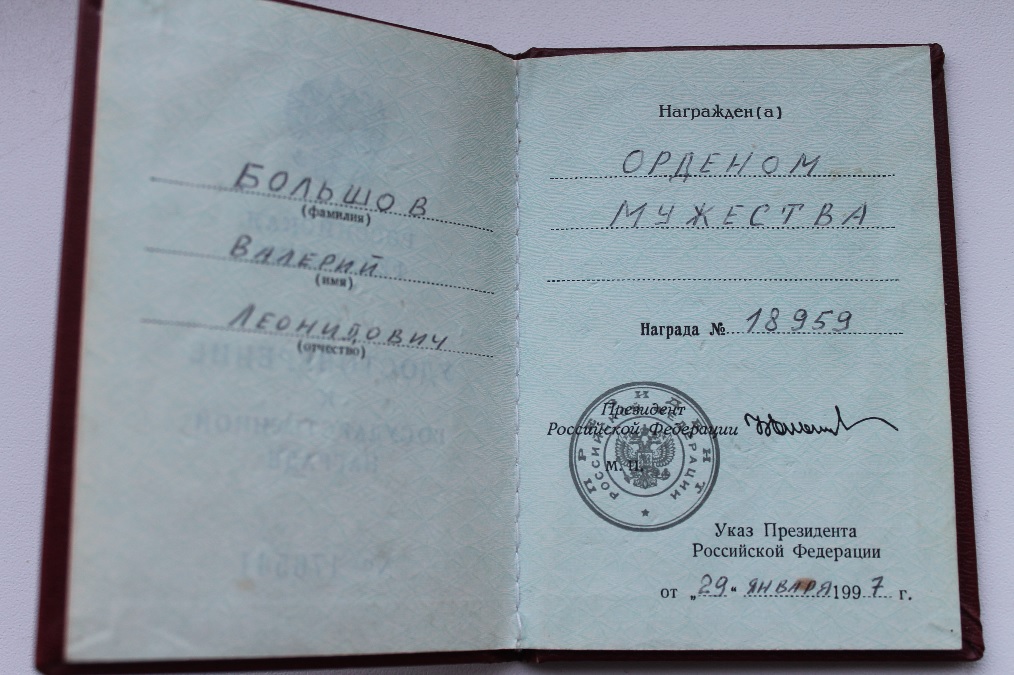 БОЛЬШОВ
(фамилия)
ВАЛЕРИЙ
(имя)
ЛЕОНИДОВИЧ
(отчество)
Награжден(а)
ОРДЕНОМ
МУЖЕСТВА
Награда № 18959
Президент
Российской Федерации
М. П.
ПРЕЗИДЕНТ
РОССИЙСКОЙ ФЕДЕРАЦИИ
Указ Президента
Российской Федерации
от „29“ ЯНВАРЯ 1997 г.